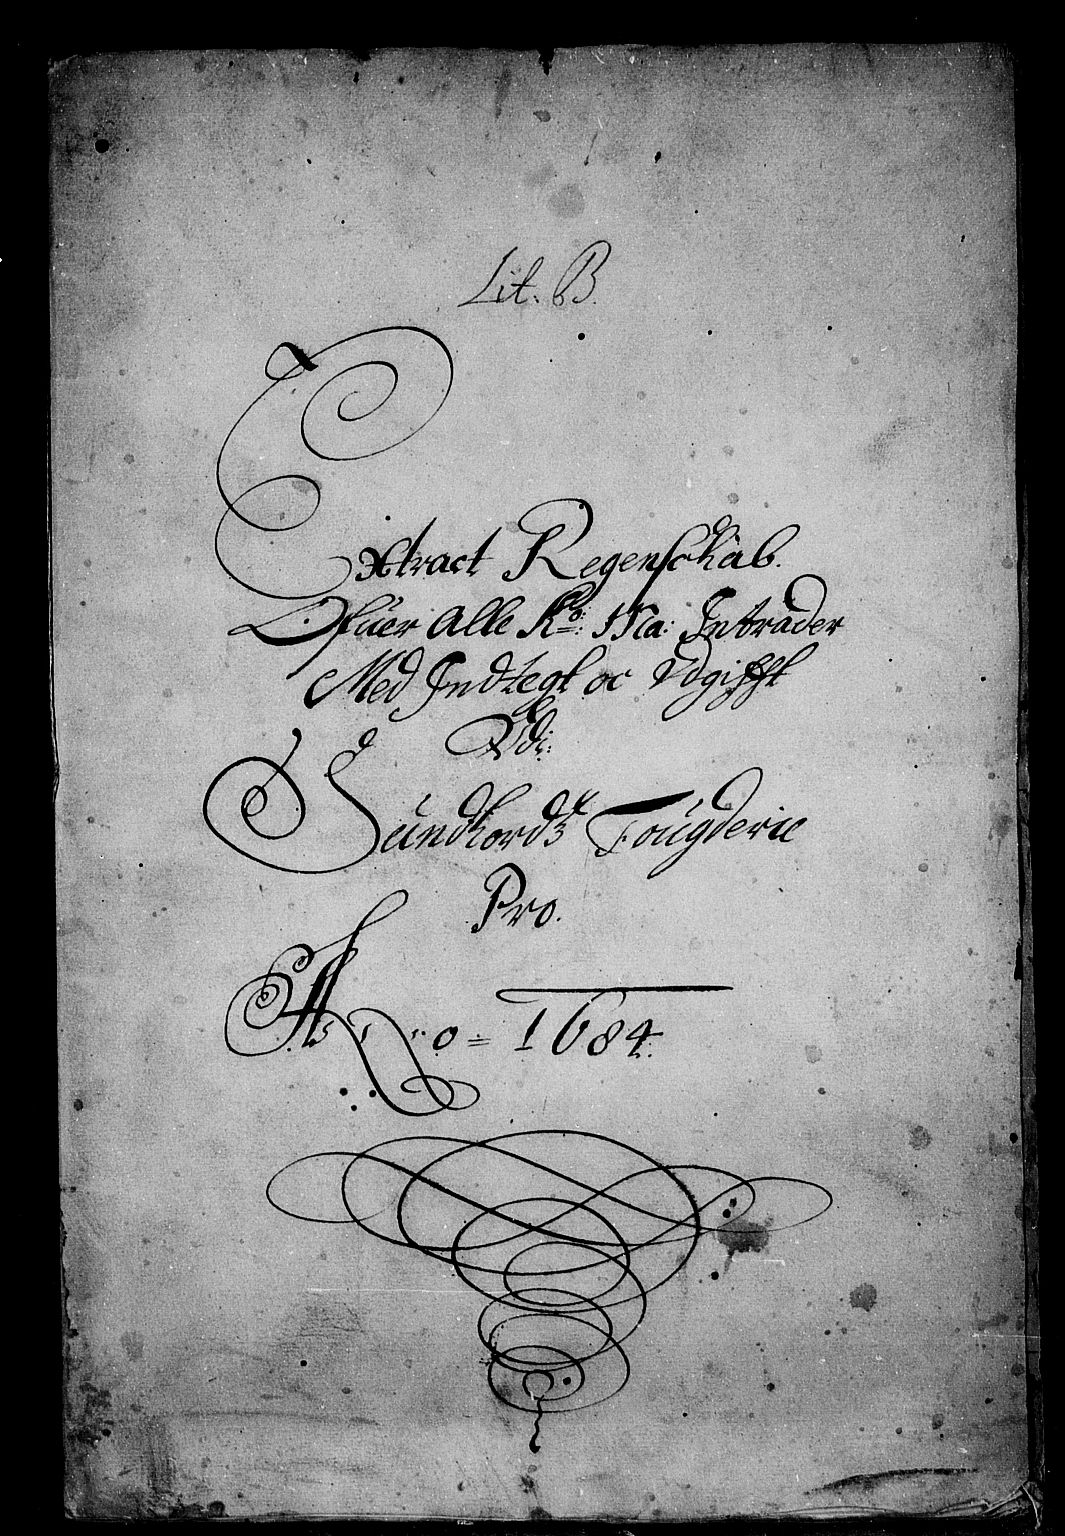 Lit. B.
Extract Regenschab.
Ofuer Alle Kg: Ma: Intrader
Med Indtegt oc Vdgifft
Vdi:
Sundhordz Fougderie
Pro.
Anno = 1684.